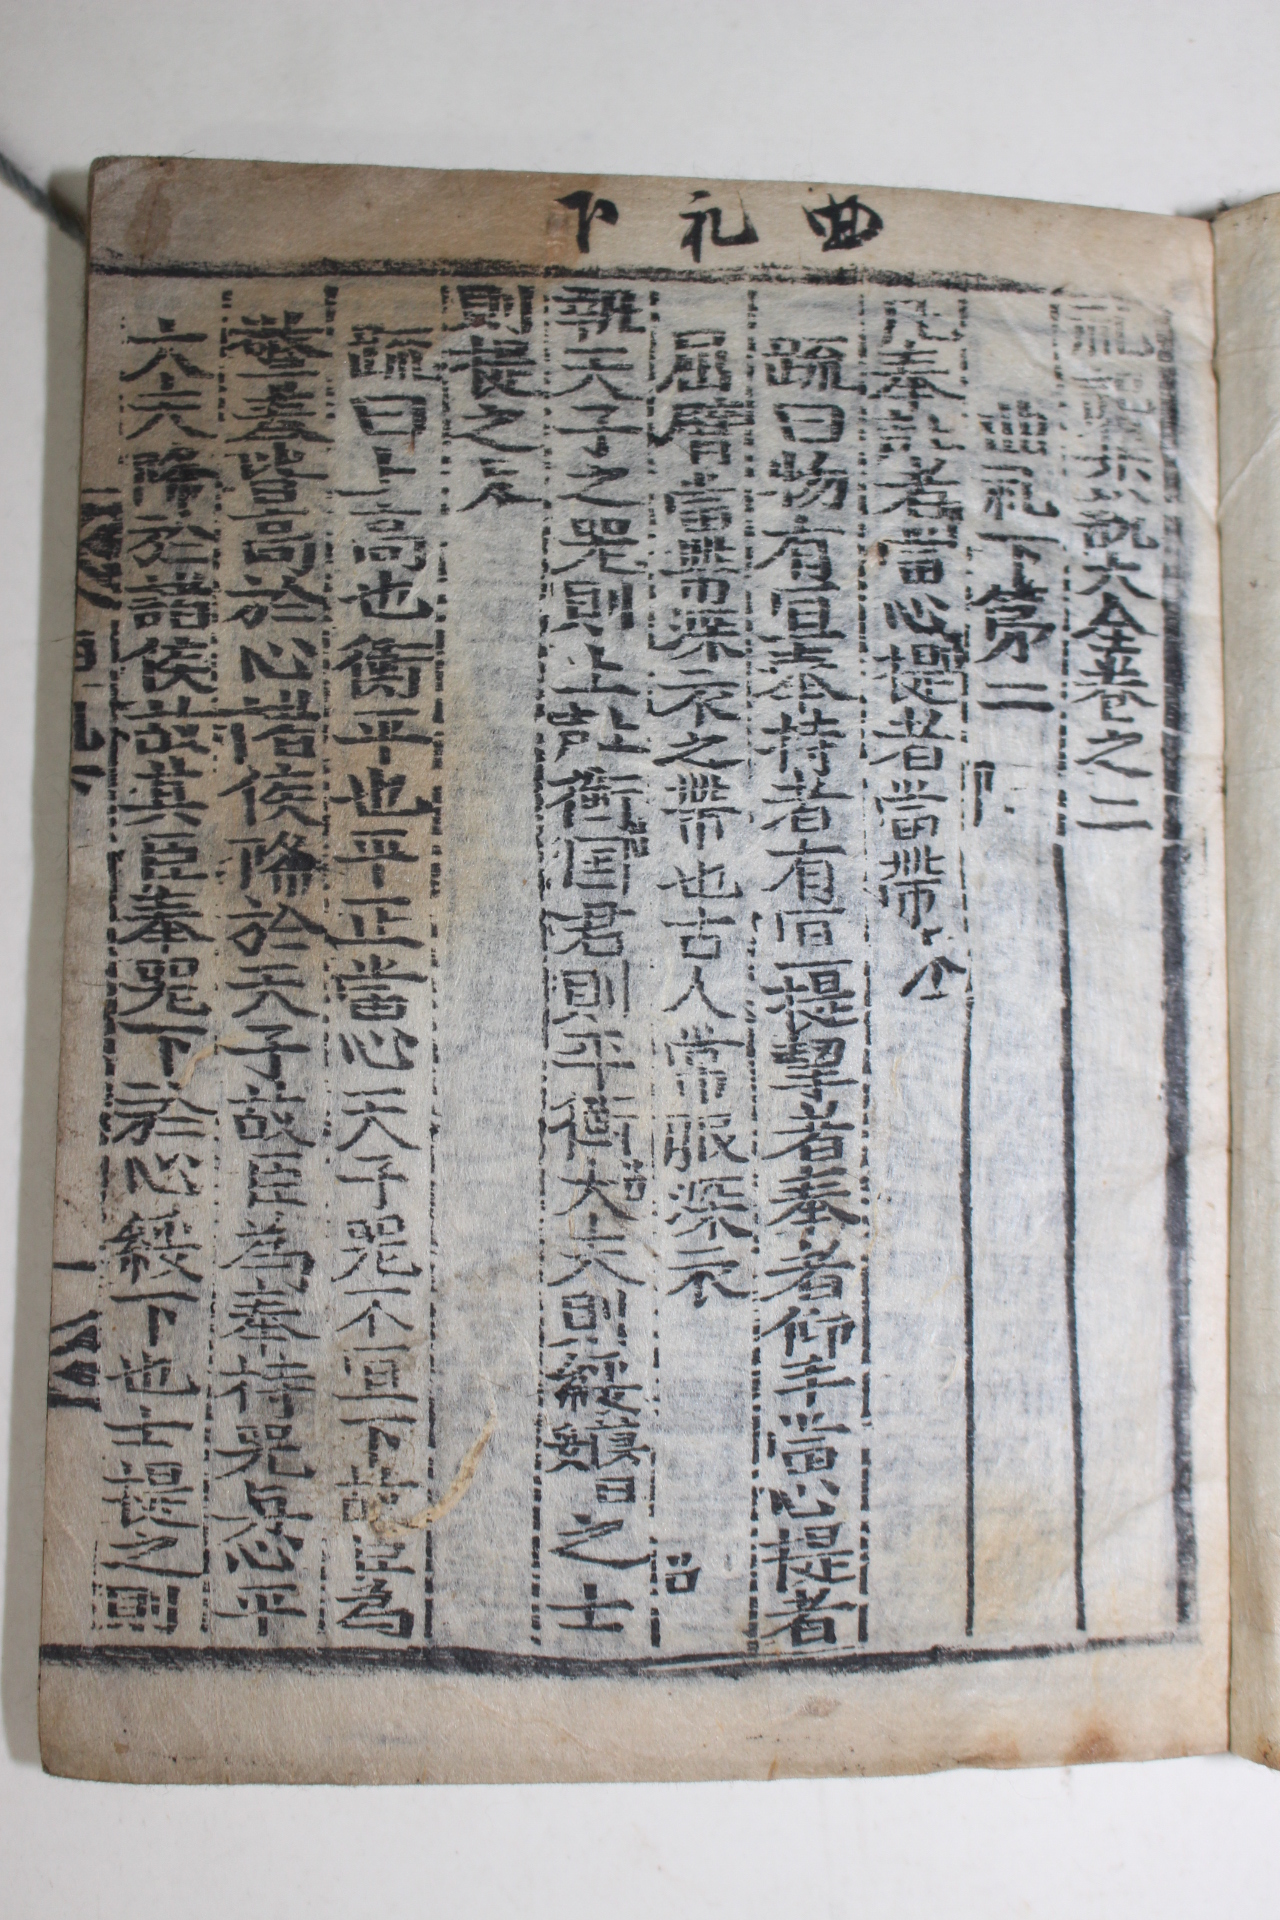 曲礼下
礼記集說大全卷之二
曲礼下第二
凡奉者當心提者當帶
疏曰物有宜奉持者有宜提挈者奉者仰手當心提者
屈臂當帶深衣之帶也古人常服深衣
執天子之器則上衡國君則平衡大夫則綏之士
則提之
疏曰上高也衡平也平正當心天子器不宜下故臣為
擎奉皆高於心諸侯降於天子故臣為奉持器与心平
大夫降於諸侯故其臣奉器下於心綏下也士提之則